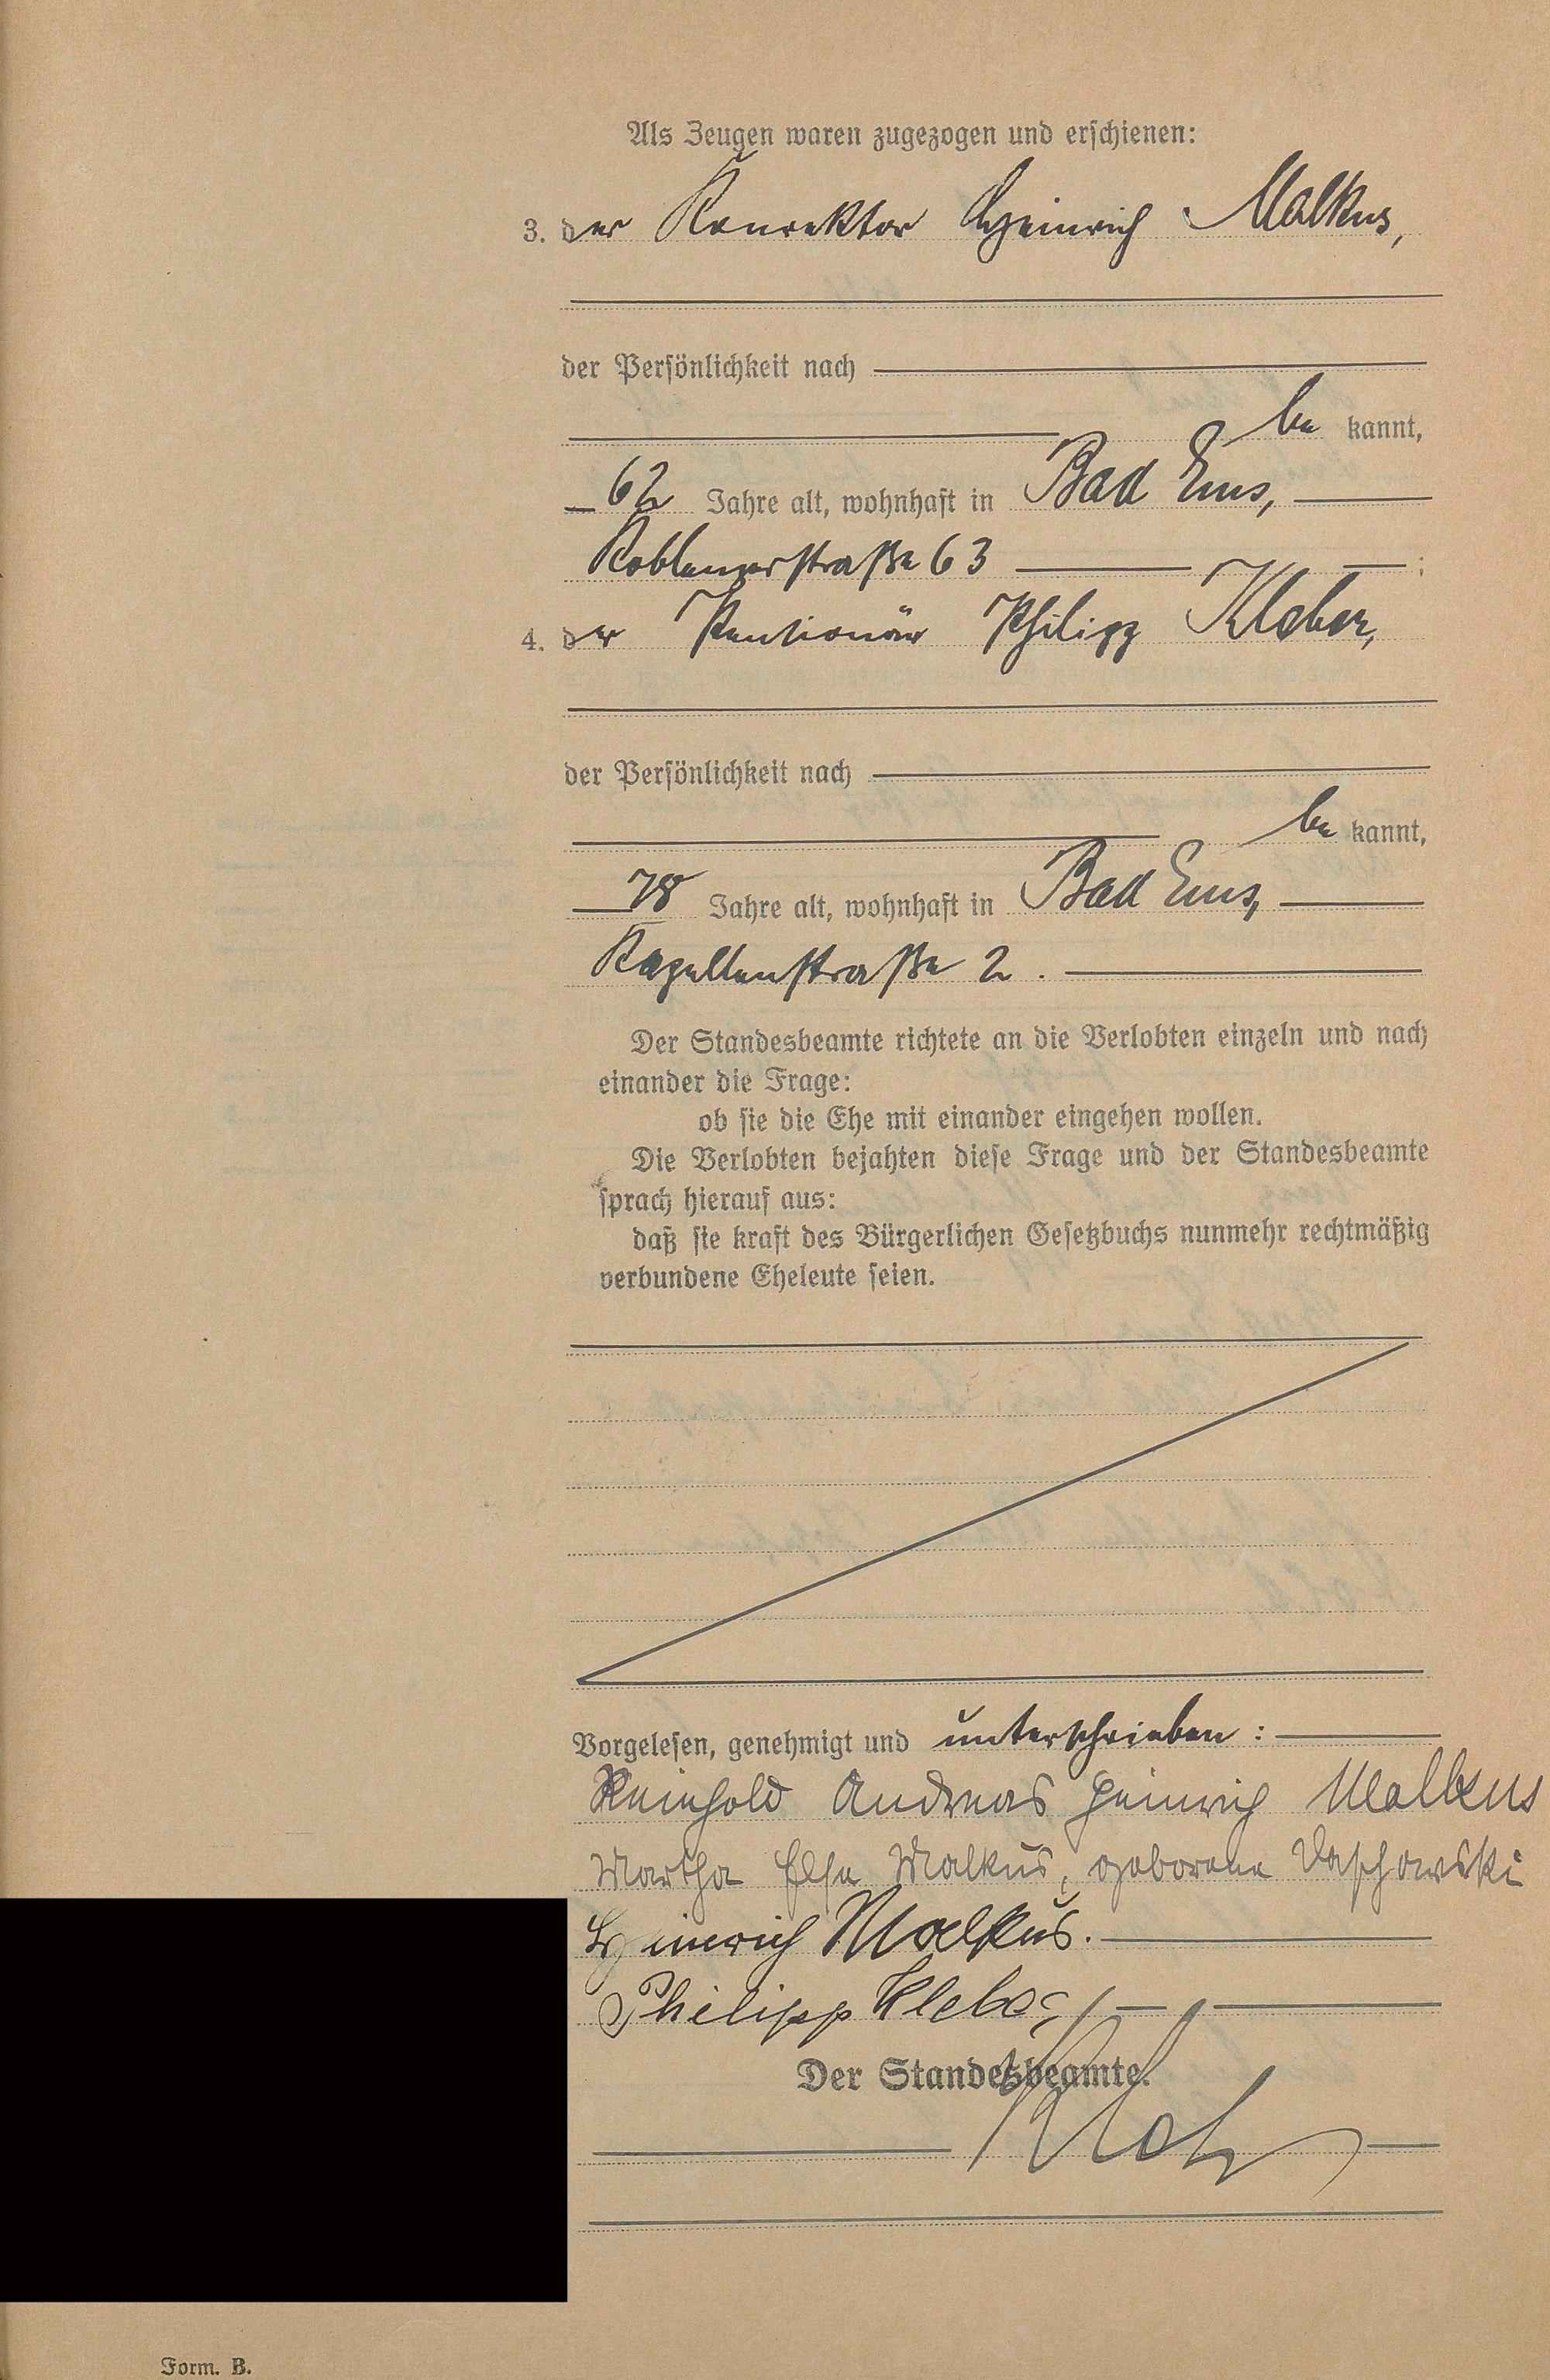 Als Zeugen waren zugezogen und erschienen:
3. der Konrektor Heinrich Malkus,
der Persönlichkeit nach
be kannt,
62 Jahre alt, wohnhaft in Bad Ems,
Koblenzerstraße 63 ;
4. der Pensionär Philipp Kleber,
der Persönlichkeit nach
be kannt,
78 Jahre alt, wohnhaft in Bad Ems,
Kapellenstraße 2.
Der Standesbeamte richtete an die Verlobten einzeln und nach
einander die Frage:
ob sie die Ehe mit einander eingehen wollen.
Die Verlobten bejahten diese Frage und der Standesbeamte
sprach hierauf aus:
daß sie kraft des Bürgerlichen Gesetzbuchs nunmehr rechtmäßig
verbundene Eheleute seien.
Vorgelesen, genehmigt und unterschrieben:
Reinhold Andreas Heinrich Malkus
Martha Else Malkus, geborene Daschowski
Heinrich Malkus.
Philipp Kleber
Der Standesbeamte.
Form. B.